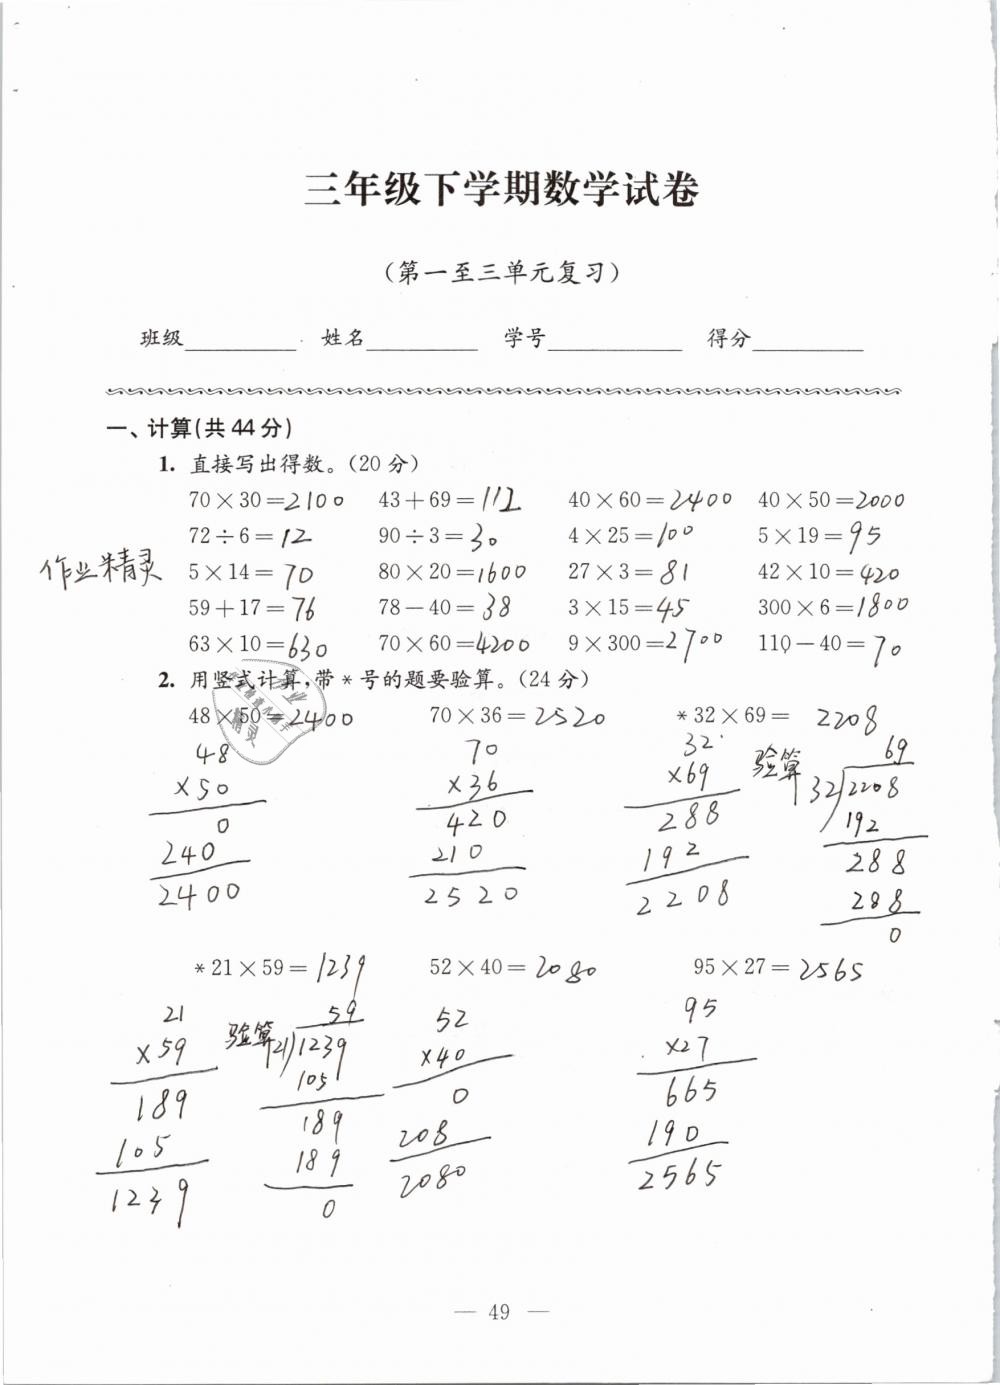 三年级下学期数学试卷
(第一至三单元复习)
班级 姓名 学号 得分
一、计算(共44分)
1. 直接写出得数。(20分)
70×30=2100 43+69=112 40×60=2400 40×50=2000
72÷6=12 90÷3=30 4×25=100 5×19=95
作业精灵 5×14=70 80×20=1600 27×3=81 42×10=420
59+17=76 78-40=38 3×15=45 300×6=1800
63×10=630 70×60=4200 9×300=2700 110-40=70
2. 用竖式计算,带*号的题要验算。(24分)
48×50=2400 70×36=2520 *32×69= 2208
48 70 32 验算 69
×50 ×36 ×69 32)2208
0 420 288 192
240 210 192 288
2400 2520 2208 288
0
*21×59=1239 52×40=2080 95×27=2565
21 验算 59 52 95
×59 21)1239 ×40 ×27
189 105 0 665
105 189 208 190
1239 189 2080 2565
0
— 49 —